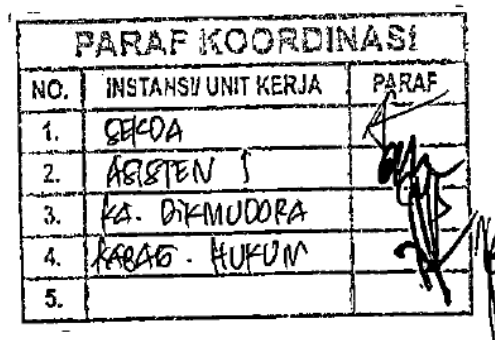 PARAF KOORDINASI
NO. INSTANSI/ UNIT KERJA PARAF
1. SEKDA
2. ASISTEN I
3. KA. DIKMUDORA
4. KABAG. HUKUM
5.